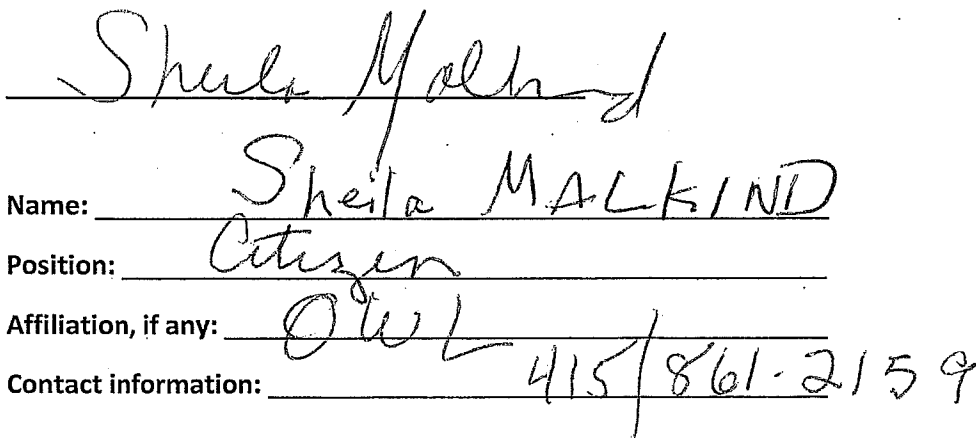 Sheila Malkind
Name: Sheila MALKIND
Position: Citizen
Affiliation, if any: OWL
Contact information: 415/861-2159